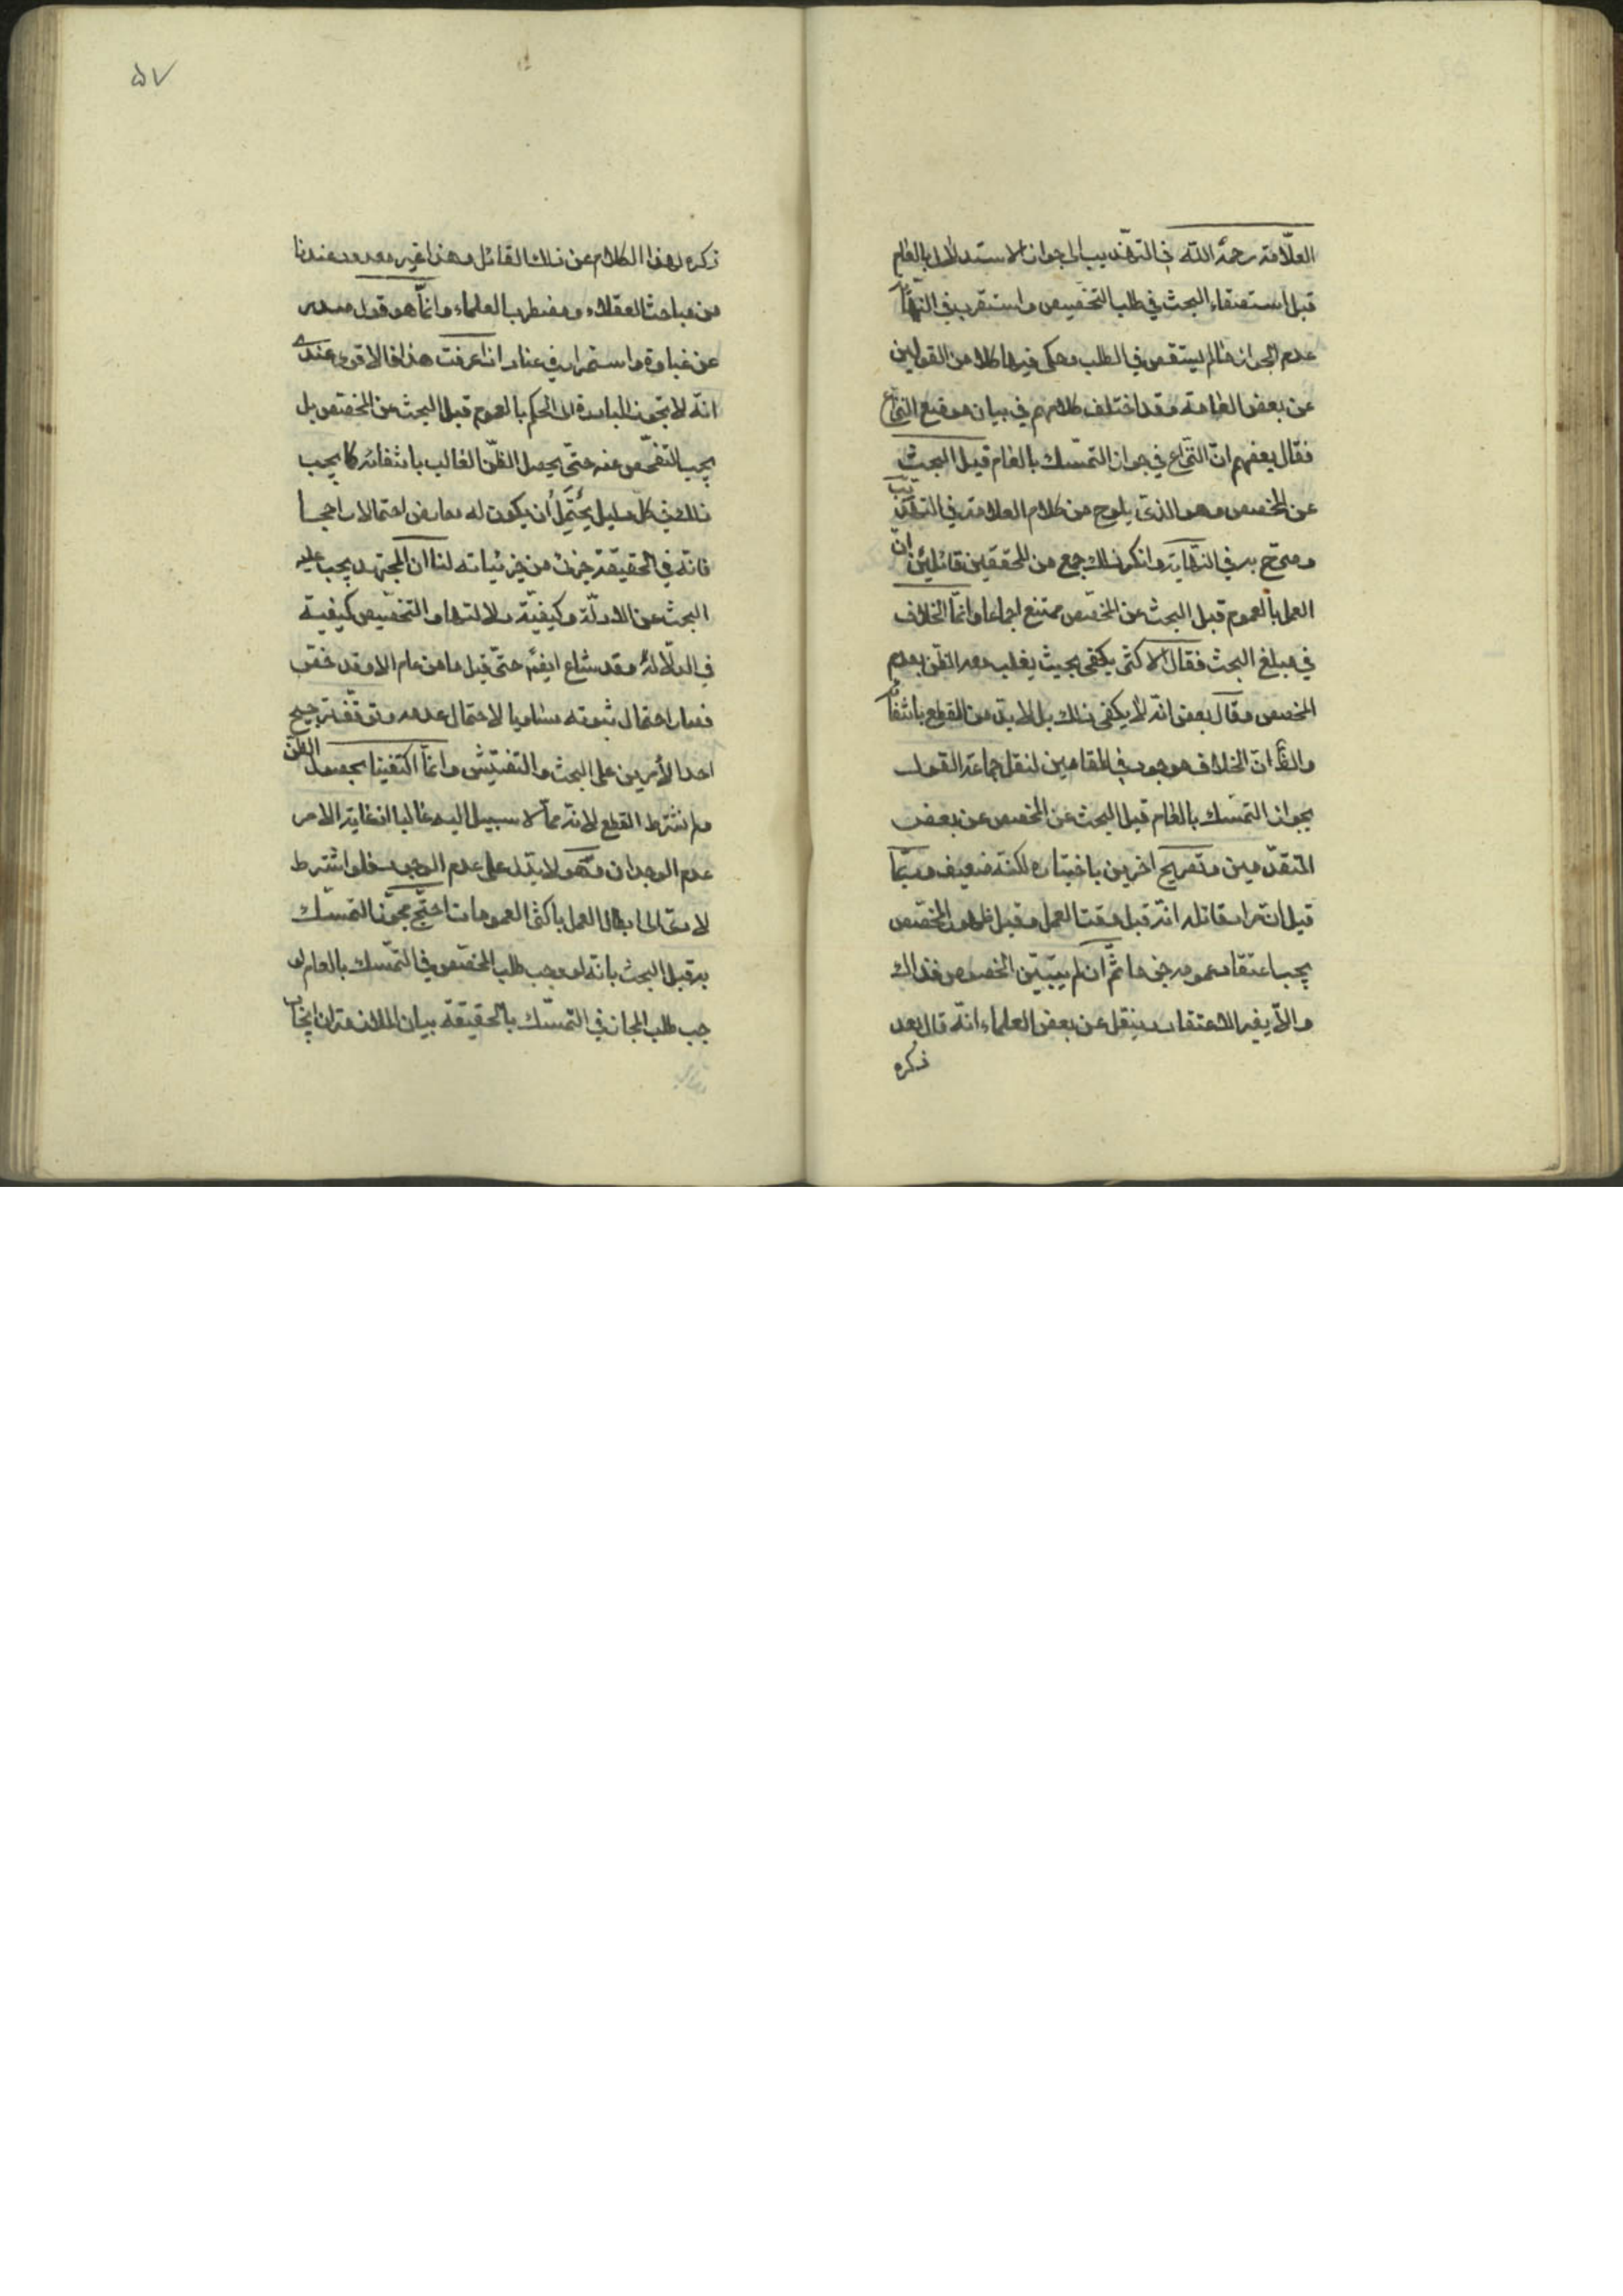 العلّامة رحمة اللّه في التهذيب الى جواز الاستدلال بالعام
قبل استقصاء البحث في طلب التخصيص واستقرب في النهاية
عدم الجواز ما لم يستقص في الطلب وحكى فيها كلا من القولين
عن بعض العامة وقد اختلف كلامهم في بيان موضع النزاع
فقال بعضهم انّ النزاع في جواز التمسّك بالعام قبل البحث
عن المخصص وهو الذى يلوح من كلام العلامة في التهذيب
وصرّح به في النهاية وانكر ذلك جمع من المحققين قائلين انّ
العمل بالعموم قبل البحث عن المخصّص ممتنع اجماعا وانّما الخلاف
في مبلغ البحث فقال الاكثر يكفى بحيث يغلب معه الظنّ بعدم
المخصص وقال بعض انّه لا يكفى ذلك بل لا بدّ من القطع بانتفائه
والظ انّ الخلاف موجود في المقامين لنقل جماعة القول
بجواز التمسّك بالعام قبل البحث عن المخصص عن بعض
المتقدّمين وتصريح اخرين باختياره لكنّه ضعيف وربّما
قيل انّ مراد قائله انّه قبل وقت العمل وقبل ظهور المخصّص
يجب اعتقاد عمومه جزما ثمّ ان لم يتبيّن الخصوص فذاك
والّا يغير الاعتقاد وينقل عن بعض العلماء انّه قال بعد
ذكره
۵۷
ذكره لهذا الكلام عن ذلك القائل وهذا غير معدود عندنا
من مباحث العقلاء ومضطرب العلماء وانّما هو قول صدر
عن غباوة واستمرار في عناد اذا عرفت هذا فالاقوى عندى
انّه لا تجوز المبادرة الى الحكم بالعموم قبل البحث عن المخصّص بل
يجب التفحّص عنه حتّى يحصل الظنّ الغالب بانتفائه كما يجب
ذلك في كلّ دليل يحتمل أن يكون له معارض احتمالا راجحا
فانّه في الحقيقة جزئ من جزئياته لنا ان المجتهد يجب عليه
البحث عن الادلّة وكيفيّة دلالتها والتخصيص كيفية
في الدلالة وقد شاع ايضا حتّى قيل ما من عام الا وقد خصّ
فصار احتمال ثبوته مساويا لاحتمال عدمه وتوقّف ترجيح
احد الأمرين على البحث والتفتيش وانّما اكتفينا بحصول الظن
ولم نشترط القطع لانّه ممّا لا سبيل اليه غالبا اذ غاية الامر
عدم الوجدان وهو لا يدّل على عدم الوجود فلو اشترط
لادّى الى ابطال العمل باكثر العمومات احتجّ مجوّز التمسّك
به قبل البحث بانّه لو وجب طلب المخصّص في التمسّك بالعام لو
جب طلب المجاز في التمسّك بالحقيقة بيان الملازمة ان ايجاب